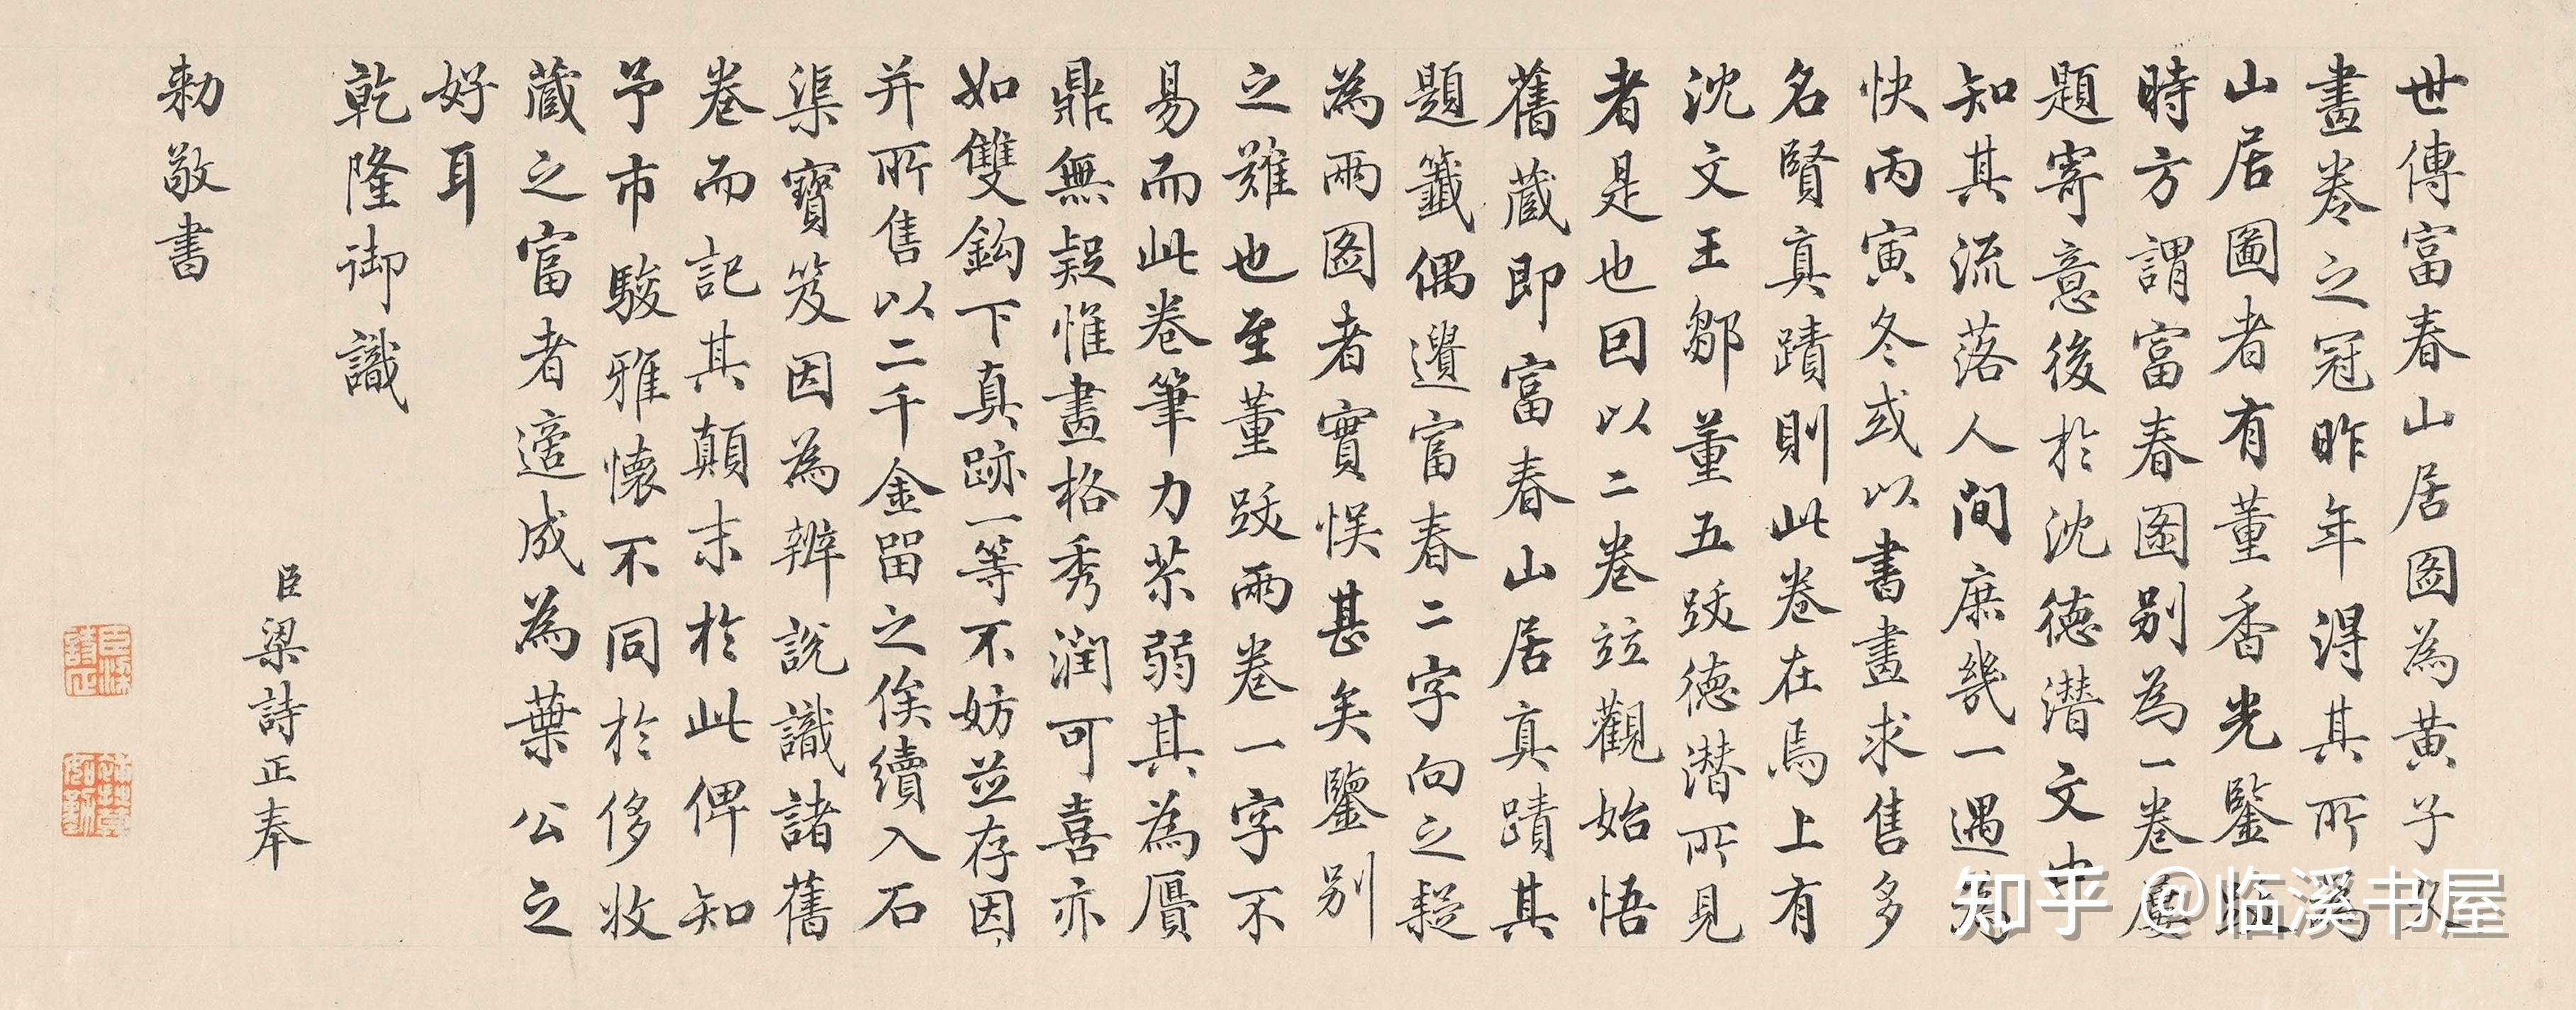 世傳富春山居圖為黃子久
畫卷之冠昨年得其所為
山居圖者有董香光鑒跋
時方謂富春圖別為一卷屢
題寄意後於沈德潛文中
知其流落人間庶幾一遇為
快丙寅冬或以書畫求售多
名賢真蹟則此卷在焉上有
沈文王鄒董五跋德潛所見
者是也因以二卷竝觀始悟
舊藏即富春山居真蹟其
題籤偶遺富春二字向之疑
為兩圖者實悞甚矣鑒別
之難也至董跋兩卷一字不
易而此卷筆力苶弱其為贋
鼎無疑惟畫格秀潤可喜亦
如雙鈎下真跡一等不妨並存因
并所售以二千金留之俟續入石
渠寶笈因為辨說識諸舊
卷而記其顛末於此俾知
予市駿雅懷不同於侈收
藏之富者適成為葉公之
好耳
乾隆御識
臣梁詩正奉
勅敬書
臣梁詩正
知乎 @临溪书屋